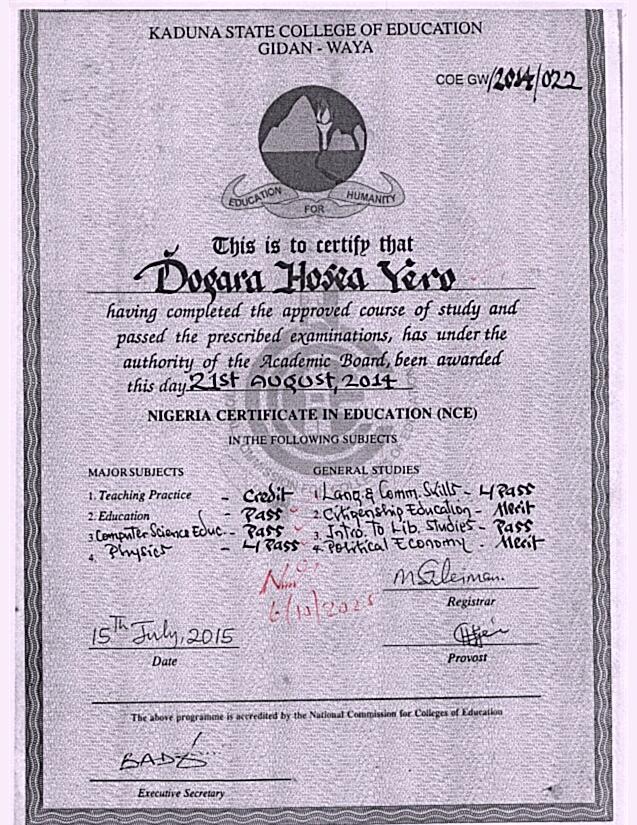 KADUNA STATE COLLEGE OF EDUCATION
GIDAN - WAYA
COE GW/2014/022
EDUCATION FOR HUMANITY
This is to certify that
Dogara Hosea Yero
having completed the approved course of study and
passed the prescribed examinations, has under the
authority of the Academic Board, been awarded
this day 21st AUGUST, 2014
NIGERIA CERTIFICATE IN EDUCATION (NCE)
IN THE FOLLOWING SUBJECTS
MAJOR SUBJECTS
1. Teaching Practice - Credit
2. Education - Pass
3. Computer Science Educ. - Pass
4. Physics - L/Pass
GENERAL STUDIES
1. Lang. & Comm. Skills - L/Pass
2. Citizenship Education - Merit
3. Intro. To Lib. Studies - Pass
4. Political Economy - Merit
6/10/2025
Registrar
15th July, 2015
Date
Provost
The above programme is accredited by the National Commission for Colleges of Education
Executive Secretary